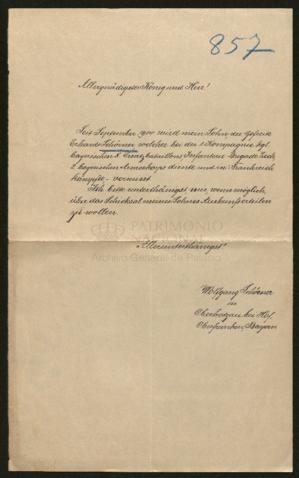 857
Allergnädigster König und Herr!
Seit September 1914 wird mein Sohn, der Gefreite
Erhard Schörner, welcher bei der 1. Kompagnie kgl.
bayerischen 8. Ersatzbataillons Infanterie Brigade
2. bayerischen Armeekorps diente und in Frankreich
kämpfte – vermisst.
Ich bitte unterthänigst mir, wenn möglich,
über das Schicksal meines Sohnes Auskunft erteilen
zu wollen.
Alleruntertänigst
PATRIMONIO
NACIONAL
Archivo General de Palacio
Wolfgang Schörner
in
bei Hof,
Oberfranken, Bayern